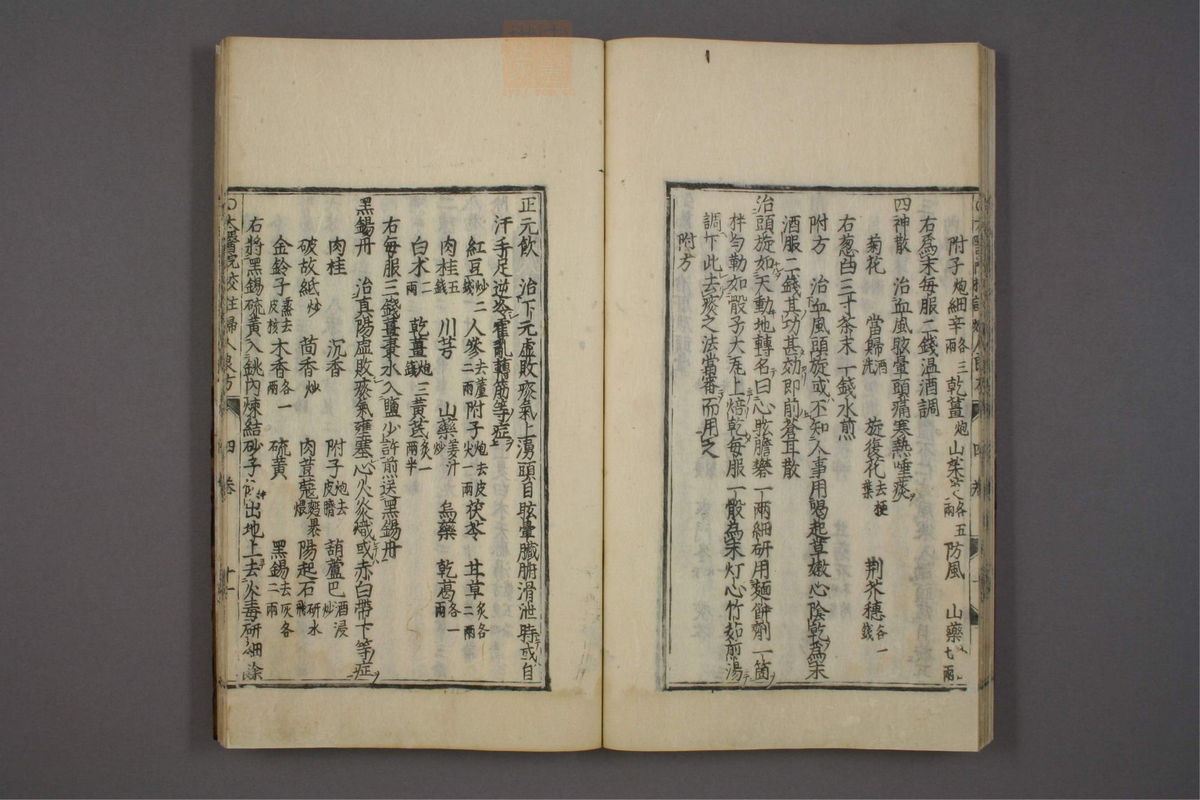 附子炮細辛各三兩乾薑炮山茱萸各五兩防風山藥七兩
右爲末每服二錢溫酒調
四神散治血風眩暈頭痛寒熱唾痰
菊花當歸酒洗旋復花去梗葉荊芥穗各一錢
右葱白三寸茶末一錢水煎
附方治血風頭旋或不知人事用喝起草嫩心陰乾爲末
酒服二錢其功甚効即前蒼耳散
治頭旋如天動地轉名曰心眩膽礬一兩細研用麵餅劑一箇
拌勻勒如骰子大瓦上焙乾每服一骰爲末灯心竹茹煎湯
調下此去痰之法當審而用之
附方
正元飲治下元虛敗痰氣上湧頭目眩暈臟腑滑泄時或自
汗手足逆冷霍亂轉筋等症
紅豆炒二錢人參去蘆二兩附子炮去皮尖一兩茯苓甘草炙各二兩
肉桂五錢川芎山藥姜汁炒烏藥乾葛各一兩
白朮二兩乾薑炮三錢黃芪炙一兩半
右每服三錢薑棗水入鹽少許煎送黑錫丹
黑錫丹治真陽虛敗痰氣壅塞心火炎熾或赤白帶下等症
肉桂沉香附子炮去皮臍葫蘆巴酒浸炒
破故紙炒茴香炒肉荳蔻麪裹煨陽起石研水飛
金鈴子蒸去皮核木香各一兩硫黃黑錫去灰各二兩
右將黑錫硫黃入銚內煉結砂子傾出地上去火毒研細除
太醫院校註婦人良方
四卷
十一